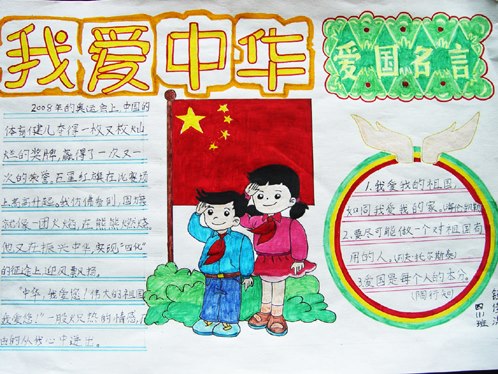 我爱中华
爱国名言
2008年的奥运会上,中国的
体育健儿夺得一枚又枚灿
烂的奖牌,赢得了一次又一
次的荣誉。五星红旗在比赛场
上冉冉升起。我仿佛看到,国旗
就像一团火焰,在熊熊燃烧。
他又在振兴中华,实现"四化"
的征途上迎风飘扬。
"中华,我爱您!伟大的祖国
我爱您!"一股炽热的情感,
由的从我心中迸出。
1.我爱我的祖国,
如同我爱我的家。
2.要尽可能做一个对祖国有
用的人。
3.爱国是每个人的本分。
(陶行知)
四(1)班